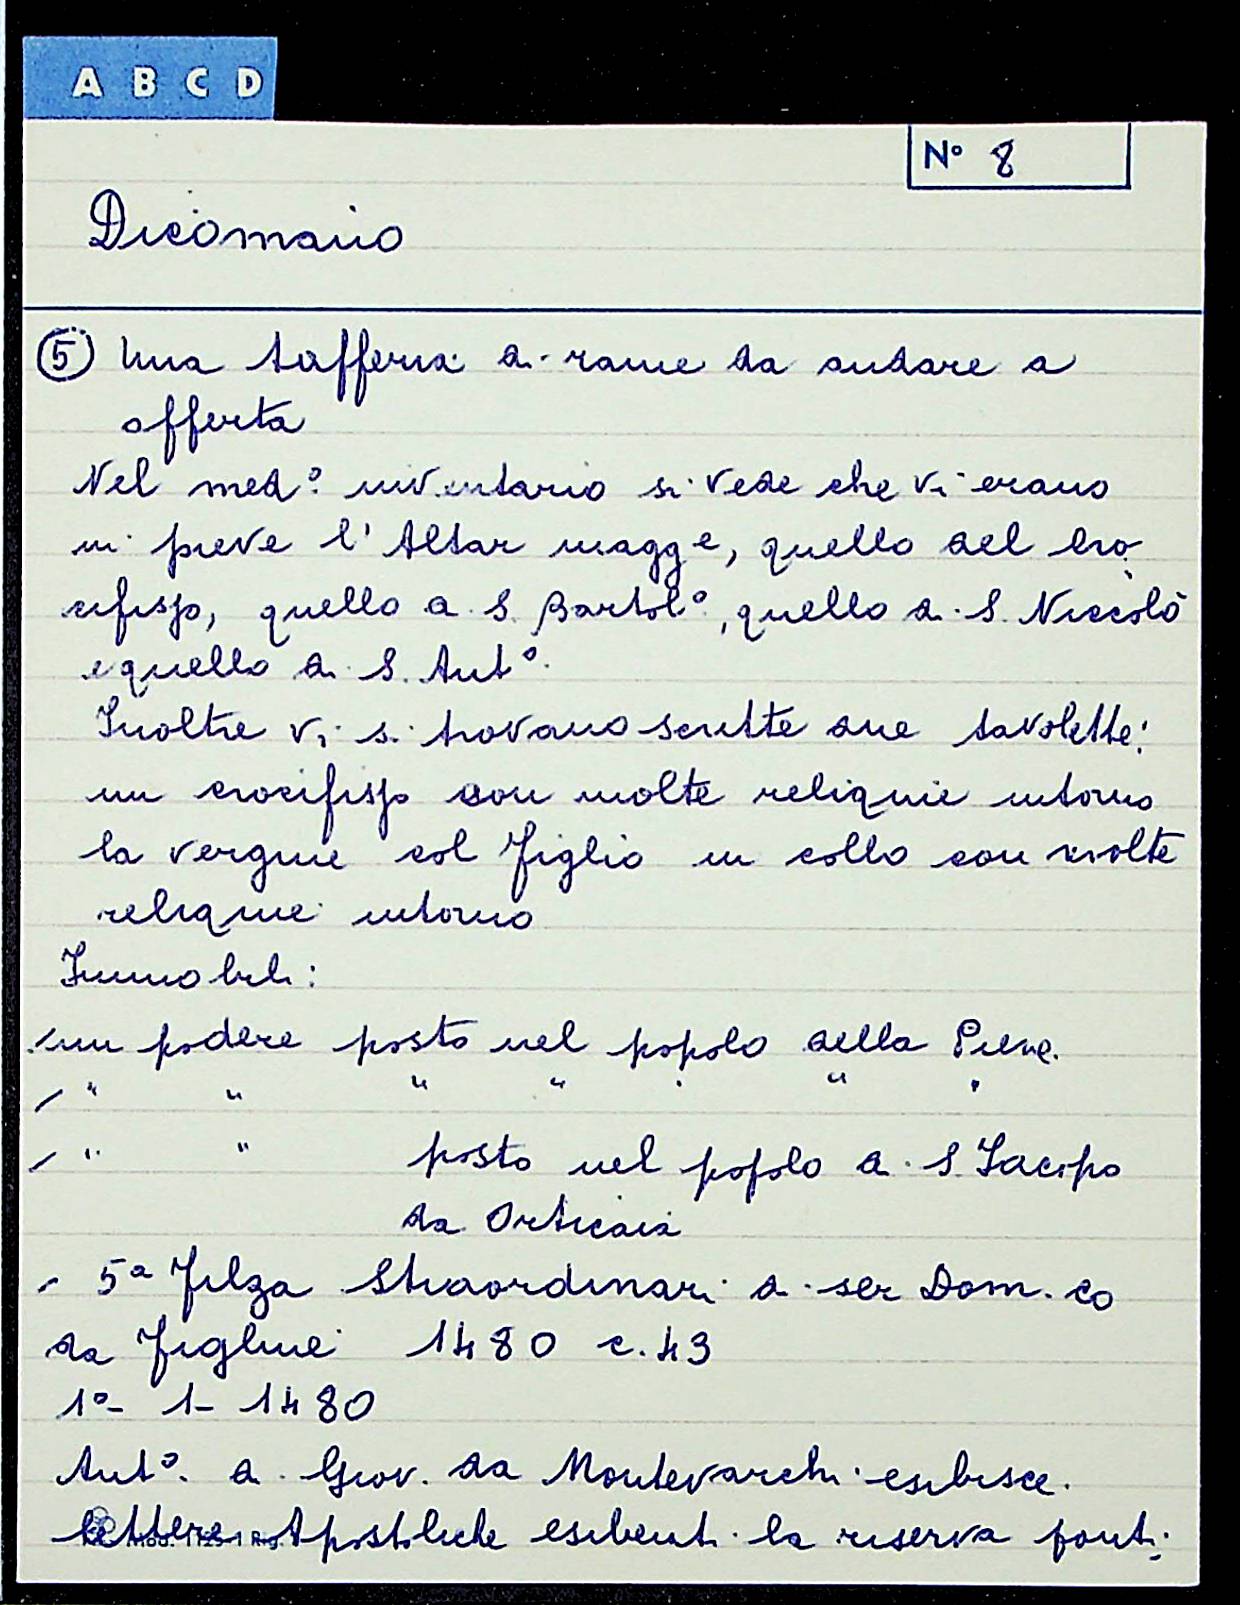 A B C D
N° 8
Dicomano
⑤ Una tafferia di rame da andare a
offerta
Nel med° inventario si vede che vi erano
in pieve l'Altar magg.e, quello del Cro
cifisso, quello d. S. Bartol°, quello d. S. Niccolò
e quello d. S. Ant°.
Inoltre vi si trovano scritte due tavolette:
un crocifisso con molte reliquie intorno
la vergine col figlio in collo con molte
reliquie intorno
Immobili:
/ un podere posto nel popolo della Pieve.
/ " " " " " " "
/ " " posto nel popolo d. S. Jacopo
da Orticaia
- 5ª Filza Straordinari di ser Dom.co
da Figline 1480 c. 43
1°- 1- 1480
Ant°. d. Giov. da Montevarchi esibisce
lettere Apostoliche esibent. la riserva ponti: